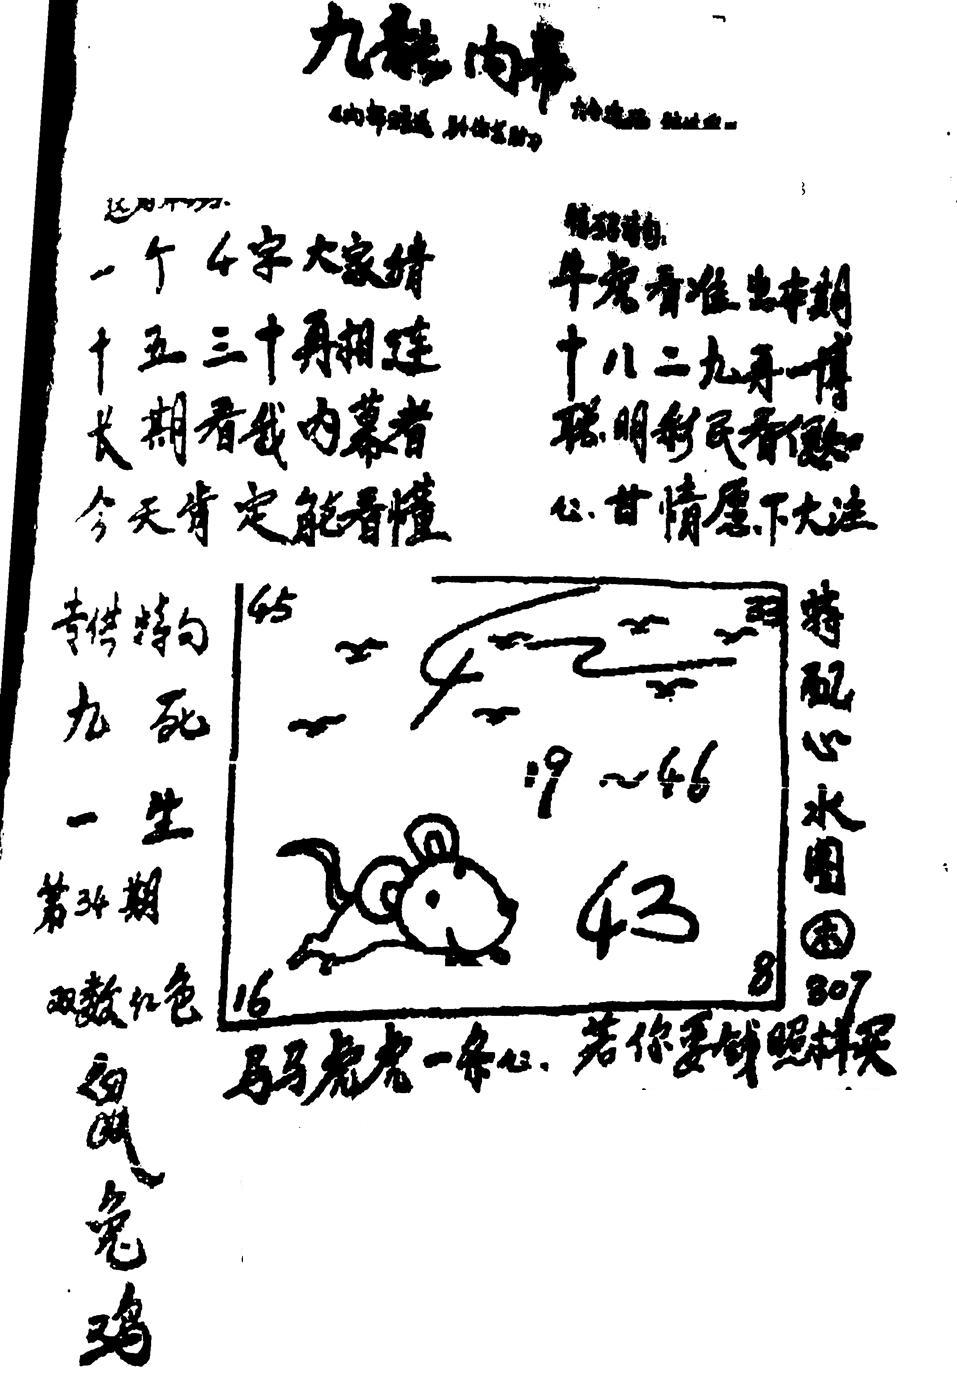 九龍内幕
一个4字大家猜
十五三十再相连
长期看我内幕者
今天肯定能看懂
特码诗句:
牛虎看准出本期
十八二九再一博
聪明彩民看便知
心甘情愿下大注
专供特句
九死
一生
第34期
双数红色
鼠
兔
鸡
45
33
19～46
43
16
8
特配心水圖
本
307
马马虎虎一条心、若你要钱照料买